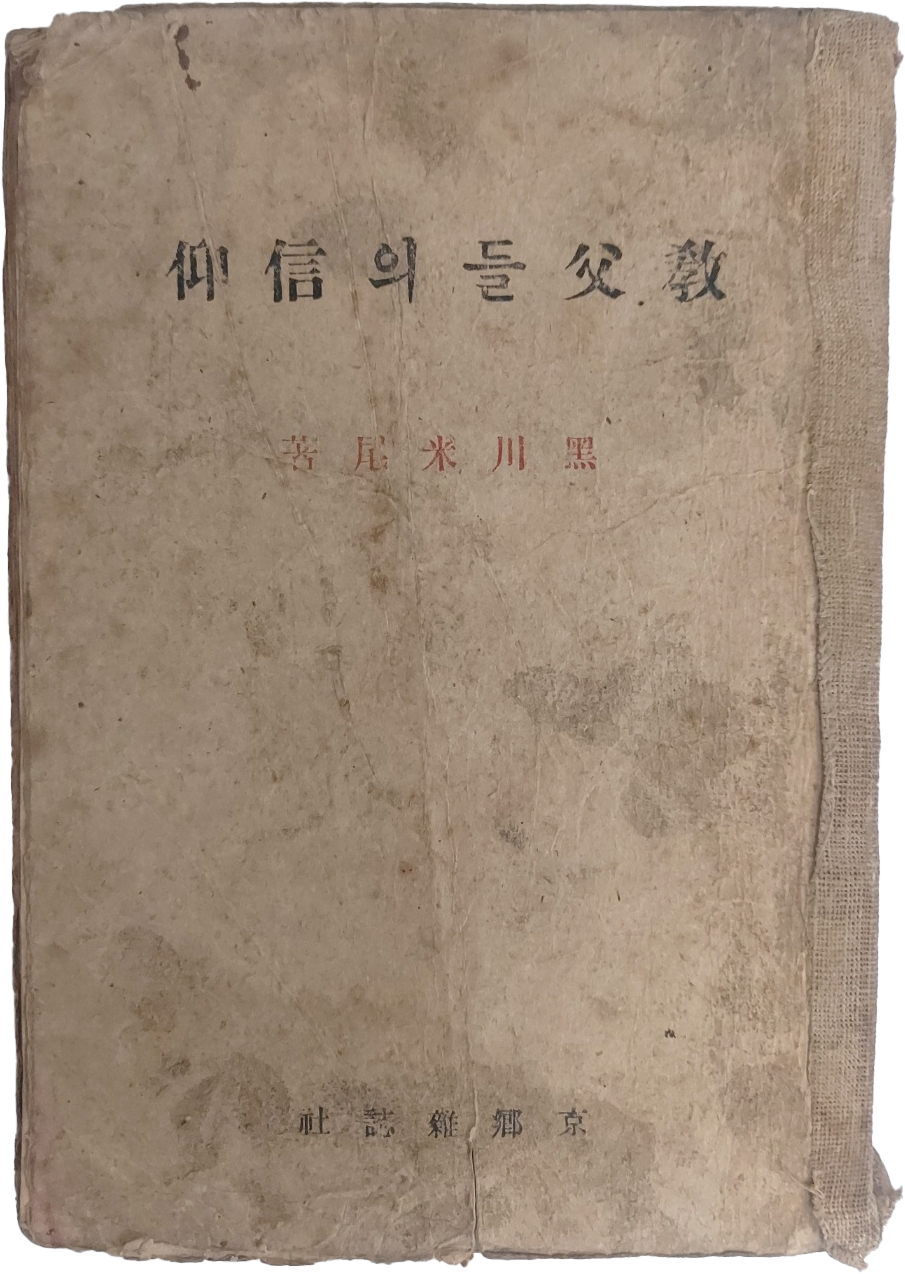 敎父들의信仰
黑川米尾著
京鄕雜誌社